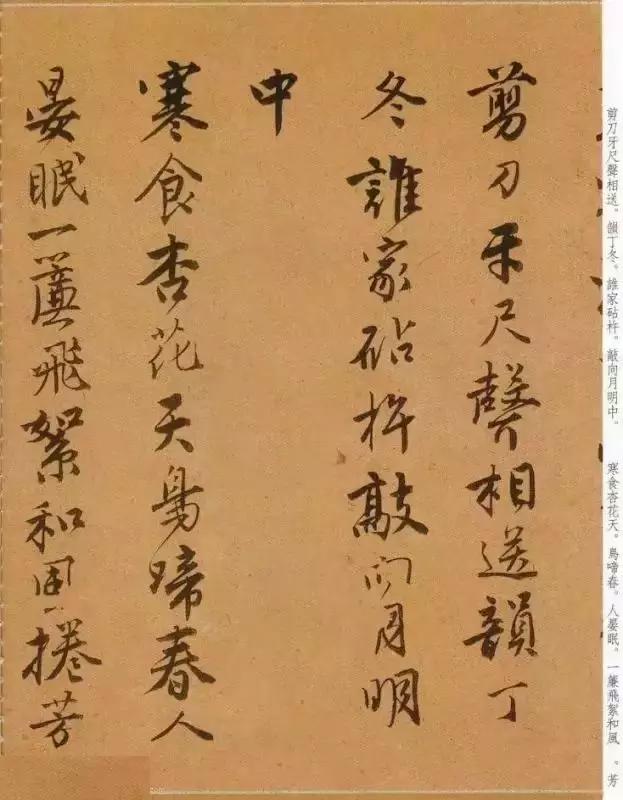 剪刀牙尺聲相送韻丁
冬誰家砧杵敲向月明
中
寒食杏花天鳥啼春人
晏眠一簾飛絮和風捲芳
剪刀牙尺聲相送。韻丁冬。誰家砧杵。敲向月明中。
寒食杏花天。鳥啼春。人晏眠。一簾飛絮和風 。芳